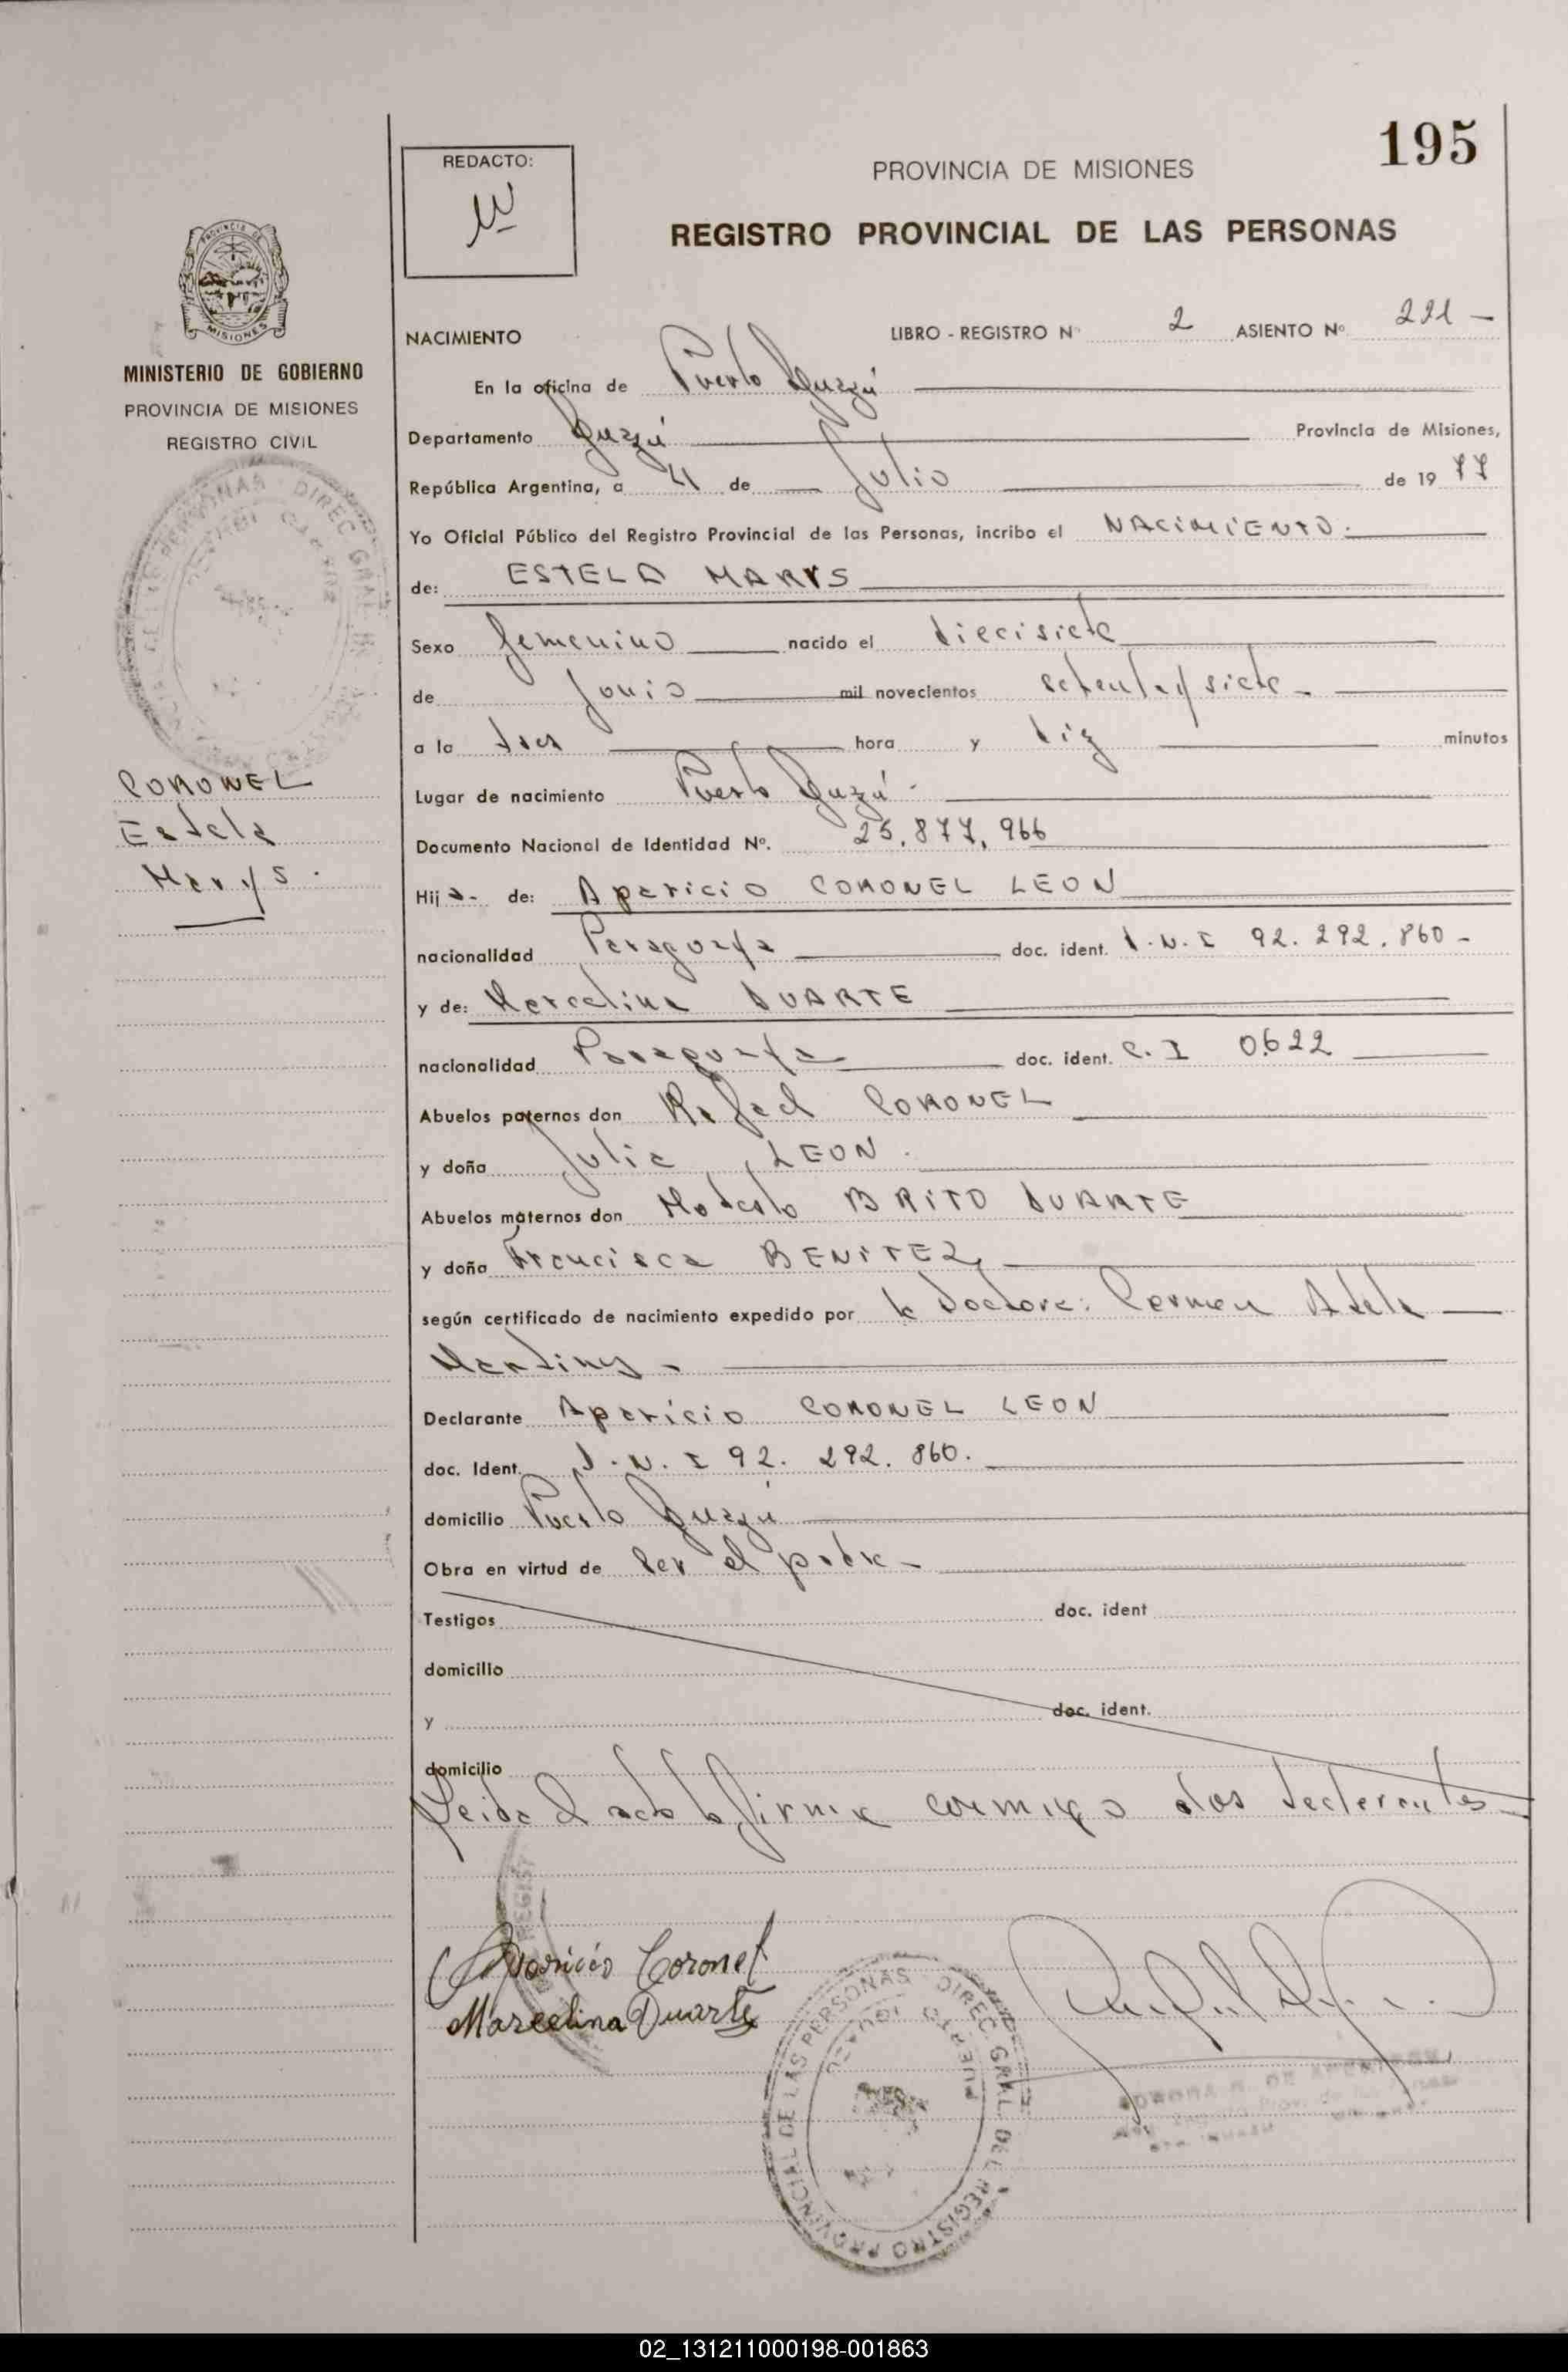 195
REDACTO:
PROVINCIA DE MISIONES
REGISTRO PROVINCIAL DE LAS PERSONAS
MINISTERIO DE GOBIERNO
PROVINCIA DE MISIONES
REGISTRO CIVIL
CORONEL
Estela
Marys.
NACIMIENTO LIBRO - REGISTRO Nº 2 ASIENTO Nº 221 -
En la oficina de Puerto Yguazú
Departamento Yguazú Provincia de Misiones,
República Argentina, a de Julio de 19 77
Yo Oficial Público del Registro Provincial de las Personas, incribo el NACIMIENTO.
de: ESTELA MARYS
Sexo femenino nacido el diecisiete
de Junio mil novecientos setenta y siete -
a la tres hora y diez minutos
Lugar de nacimiento Puerto Yguazú.
Documento Nacional de Identidad Nº. 25.877.966
Hij a- de: Aparicio CORONEL LEON
nacionalidad Paraguaya doc. ident. D.N.I 92.292.860 -
y de: Marcelina DUARTE
nacionalidad Paraguaya doc. ident. C.I 0622
Abuelos paternos don Rafael CORONEL
y doña Julia LEON.
Abuelos maternos don Modesto BRITO DUARTE
y doña Francisca BENITEZ,
según certificado de nacimiento expedido por la Doctora: Carmen Adela
Martinez -
Declarante Aparicio CORONEL LEON
doc. Ident. D.N.I 92.292.860.
domicilio Puerto Yguazú
Obra en virtud de ser el padre -
Testigos doc. ident
domicilio
y doc. ident.
domicilio
Leida el acta la firma conmigo los declarantes
Aparicio Coronel
Marcelina Duarte
DIREC. GRAL. DEL REGISTRO PROVINCIAL DE LAS PERSONAS
PUERTO IGUAZU
02_131211000198-001863